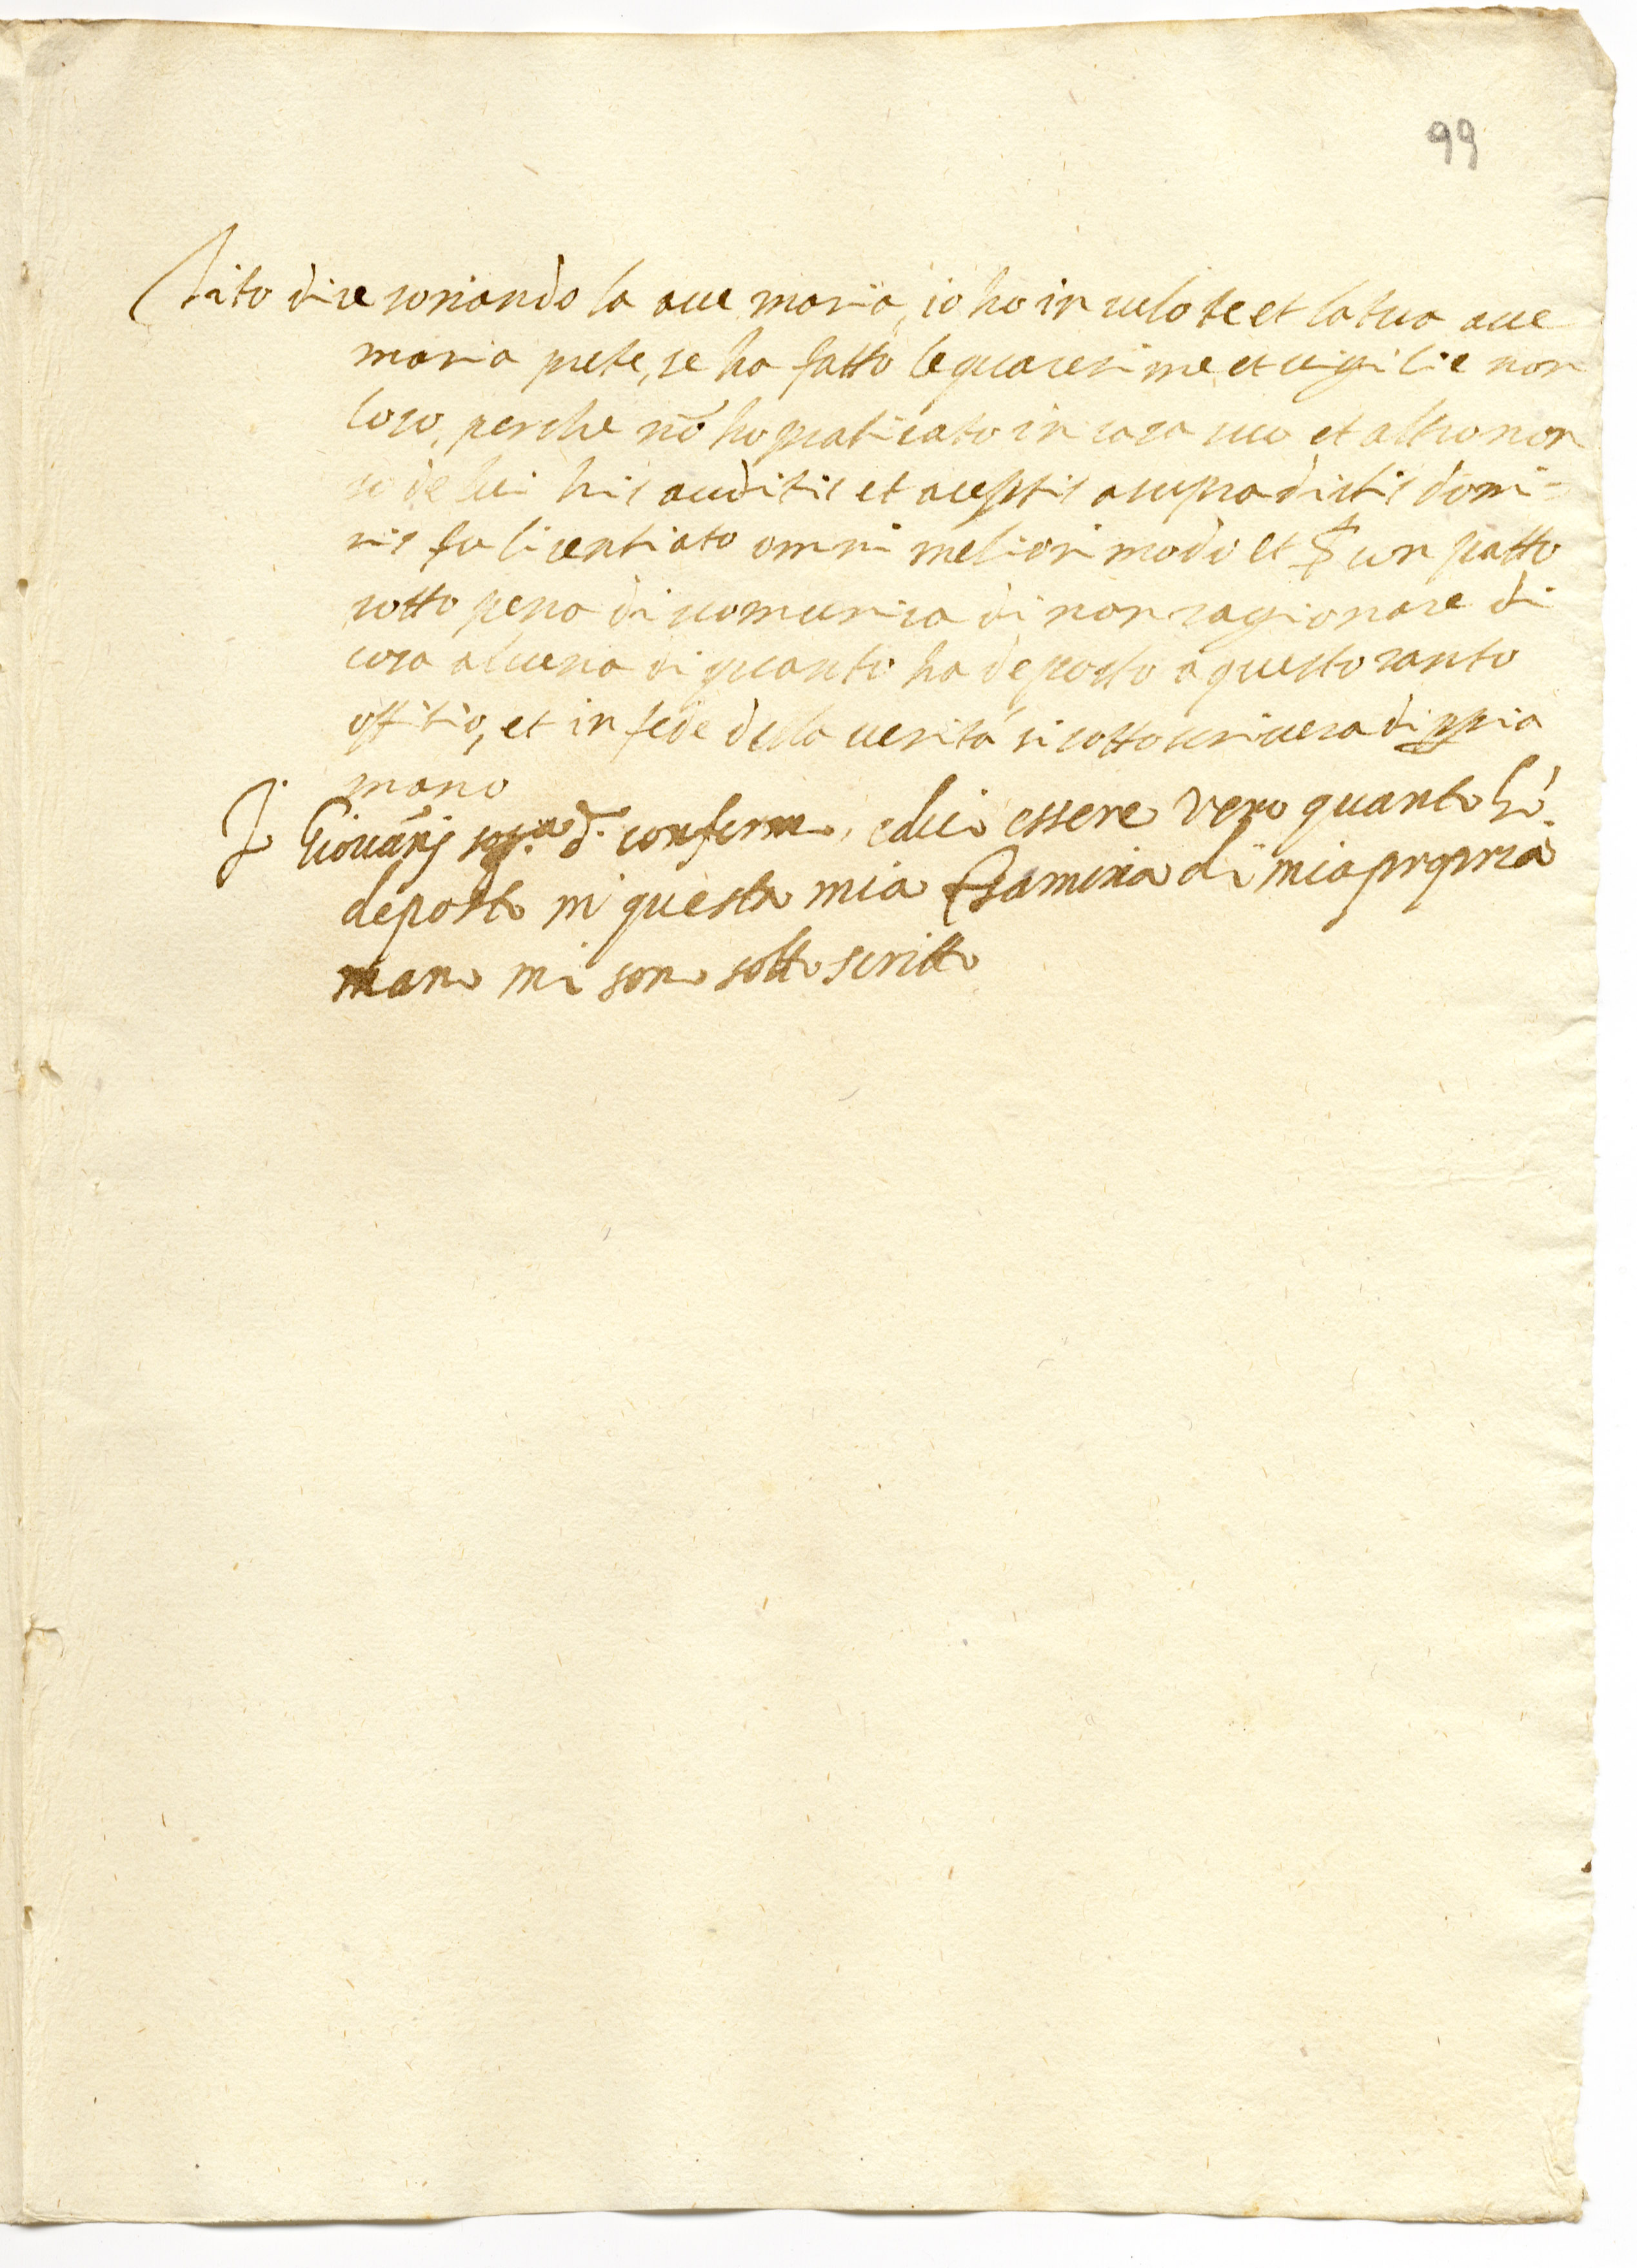 99
Tito dice sonando la ave maria, io ho in culo te et la tua ave
maria prete, se ha fatto le quaresime et vigilie non
loso, perche nō ho praticato in casa sua et altro non
so de lui his auditis et aceptis a supradictis domi=
nis fu licentiato omni meliori modo et con patto
sotto pena di scomunica di non ragionare di
cosa alcuna di quanto ha deposto a questo santo
offitio, et in fede della verità si sottoscrivera di ppria
mano
Io Giovāni sop.to d. confermo, e dico essere vero quanto hò
deposto in questa mia Esamina di mia propria
mano mi sono sotto scritto